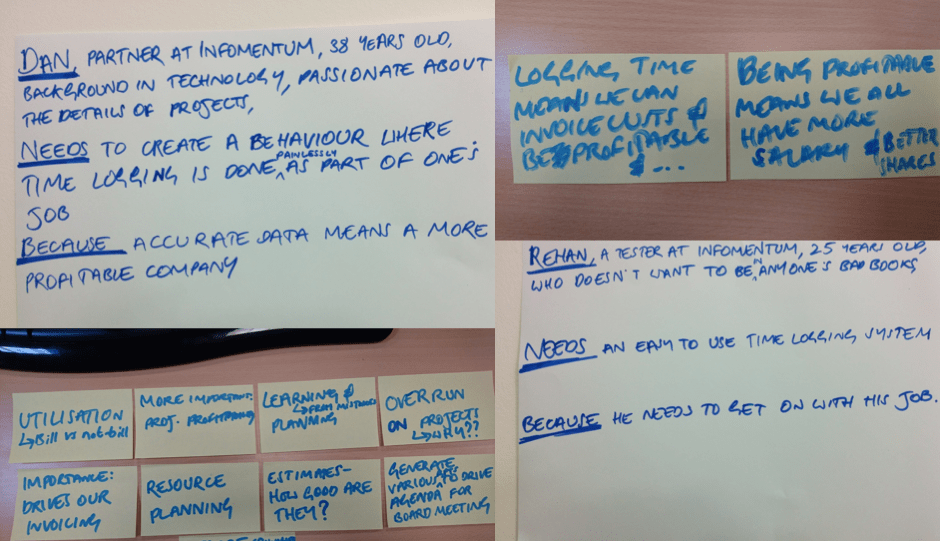 DAN, PARTNER AT INFOMENTUM, 38 YEARS OLD,
BACKGROUND IN TECHNOLOGY, PASSIONATE ABOUT
THE DETAILS OF PROJECTS,
NEEDS TO CREATE A BEHAVIOUR WHERE
TIME LOGGING IS DONE PAINLESSLY AS PART OF ONE'S
JOB
BECAUSE ACCURATE DATA MEANS A MORE
PROFITABLE COMPANY
LOGGING TIME
MEANS WE CAN
INVOICE CUSTS &
BE PROFITABLE
& ...
BEING PROFITABLE
MEANS WE ALL
HAVE MORE
SALARY & BETTER
SHARES
UTILISATION
↳ Bill vs not-bill
MORE IMPORTANT:
PROJ. PROFITABILITY
LEARNING &
↳ FROM MISTAKES
PLANNING
OVERRUN
ON PROJECTS
↳ WHY??
IMPORTANCE:
DRIVES OUR
INVOICING
RESOURCE
PLANNING
ESTIMATES-
HOW GOOD ARE
THEY?
GENERATE
VARIOUS TO DRIVE
AGENDA FOR
BOARD MEETING
REHAN, A TESTER AT INFOMENTUM, 25 YEARS OLD,
WHO DOESN'T WANT TO BE IN ANYONE'S BAD BOOKS
NEEDS AN EASY TO USE TIME LOGGING SYSTEM
BECAUSE HE NEEDS TO GET ON WITH HIS JOB.